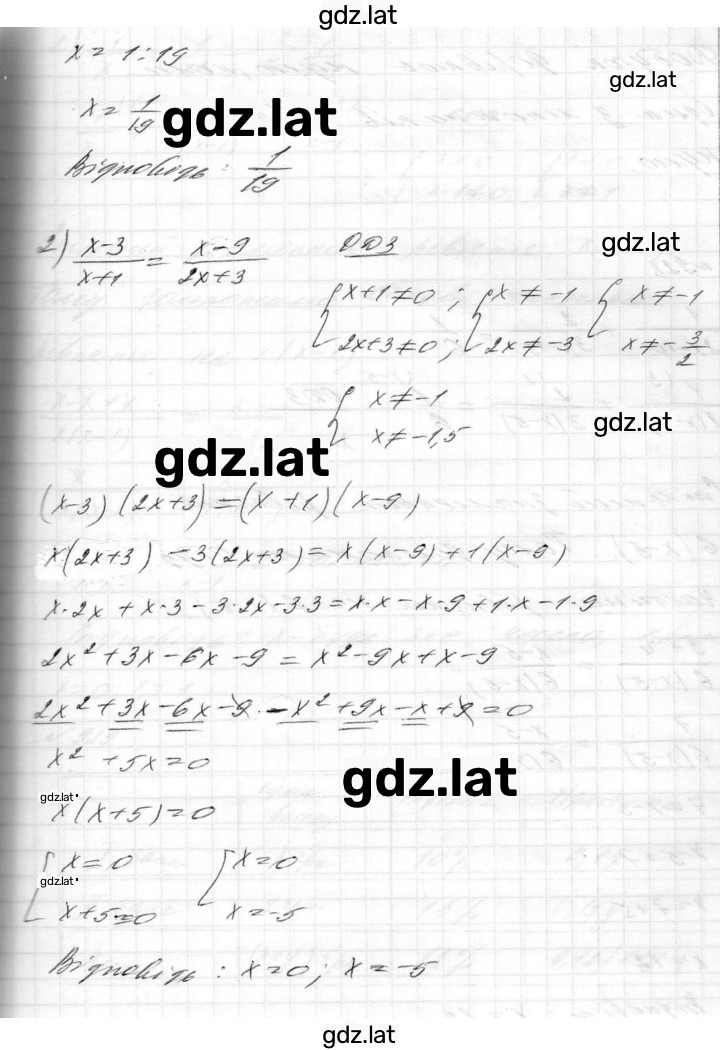 gdz.lat
x = 1 : 19
gdz.lat
x = 1/19
gdz.lat
Відповідь : 1/19
2) (x-3)/(x+1) = (x-9)/(2x+3) ОДЗ
gdz.lat
{ x+1≠0 ; { x≠-1 { x≠-1
2x+3≠0 ; 2x≠-3 x≠-3/2
{ x≠-1
x≠-1,5
gdz.lat
gdz.lat
(x-3)(2x+3)=(x+1)(x-9)
x(2x+3) -3(2x+3)= x(x-9)+1(x-9)
x·2x + x·3 - 3·2x -3·3 = x·x - x·9 +1·x -1·9
2x² +3x -6x -9 = x² -9x+x-9
2x² +3x -6x -9 -x² +9x -x +9 =0
x² +5x=0
gdz.lat
gdz.lat
x(x+5)=0
[ x=0 [ x=0
gdz.lat
x+5=0 x=-5
Відповідь : x=0; x=-5
gdz.lat